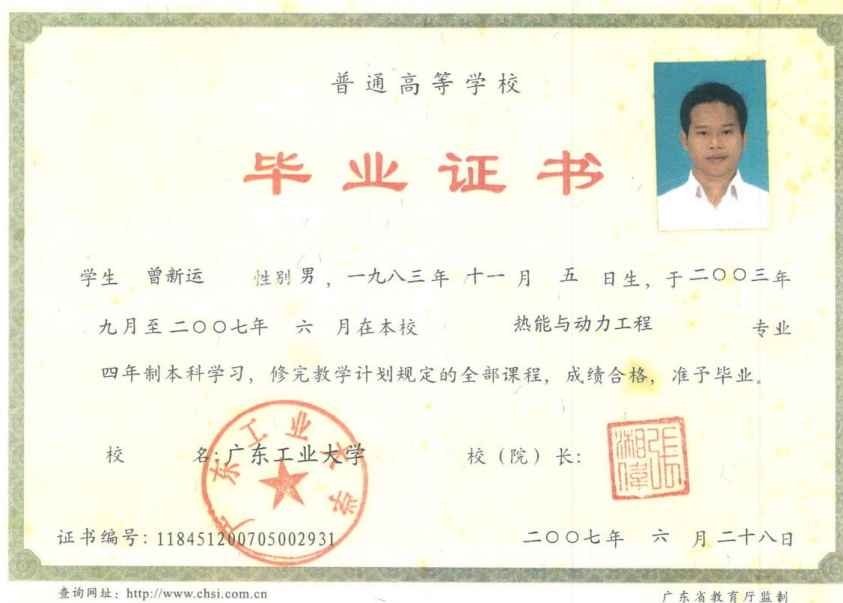 普通高等学校
毕业证书
学生 曾新运 性别男，一九八三年 十一 月 五 日生，于二〇〇三年
九月至二〇〇七年 六 月在本校 热能与动力工程 专业
四年制本科学习，修完教学计划规定的全部课程，成绩合格，准予毕业。
校 名:广东工业大学 校（院）长:
广东工业大学
張湘偉
证书编号: 118451200705002931 二〇〇七年 六 月二十八日
查询网址: http://www.chsi.com.cn 广东省教育厅监制